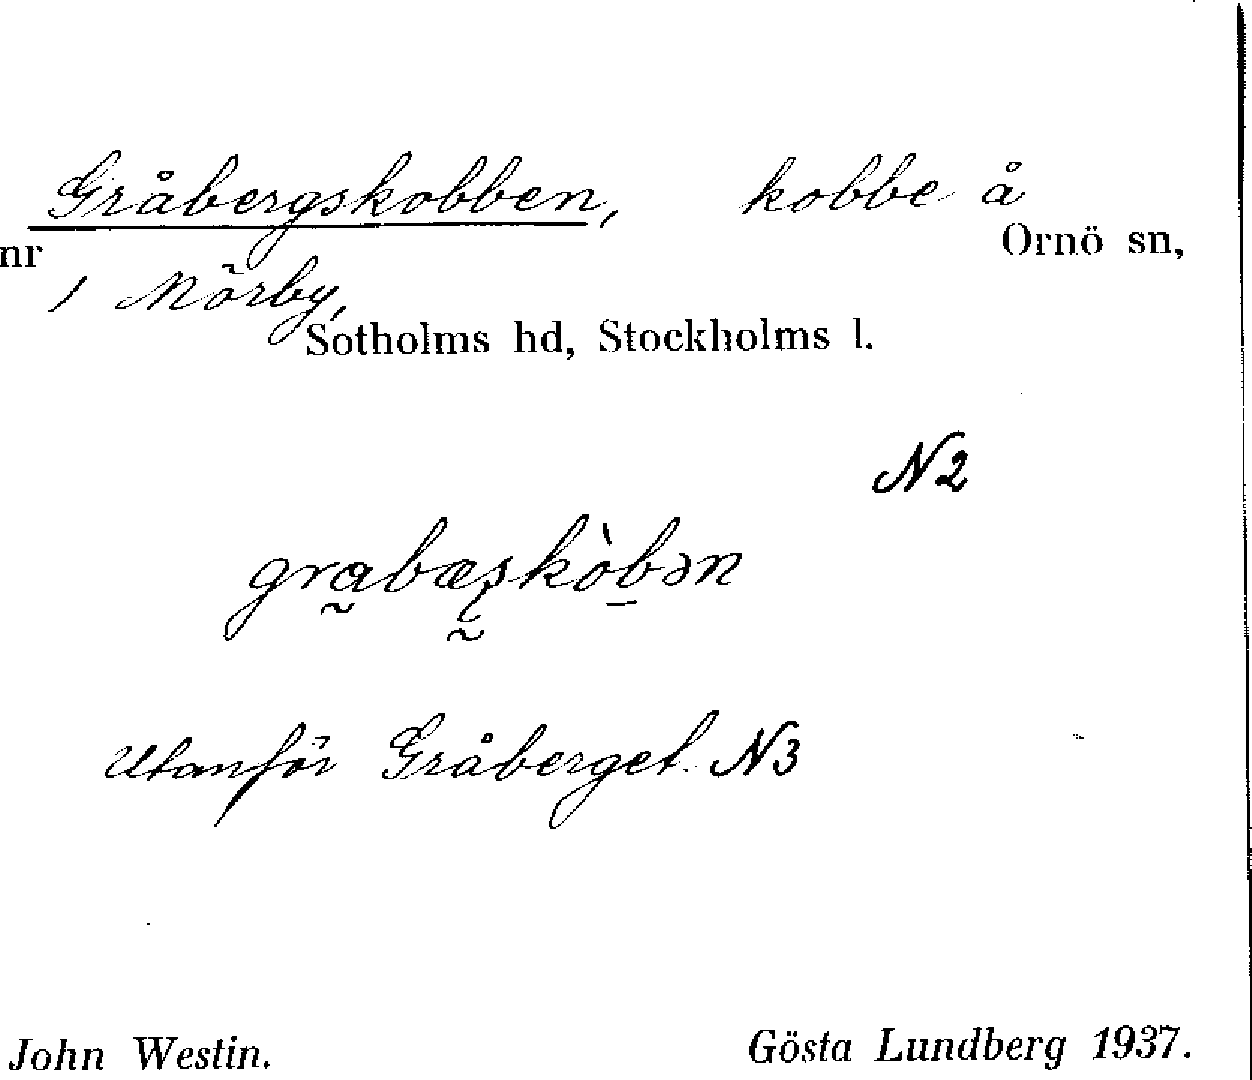 Gråbergskobben, kobbe å
nr
1 Mörby,
Ornö sn,
Sotholms hd, Stockholms l.
N2
Utanför Gråberget. N3
John Westin.
Gösta Lundberg 1937.